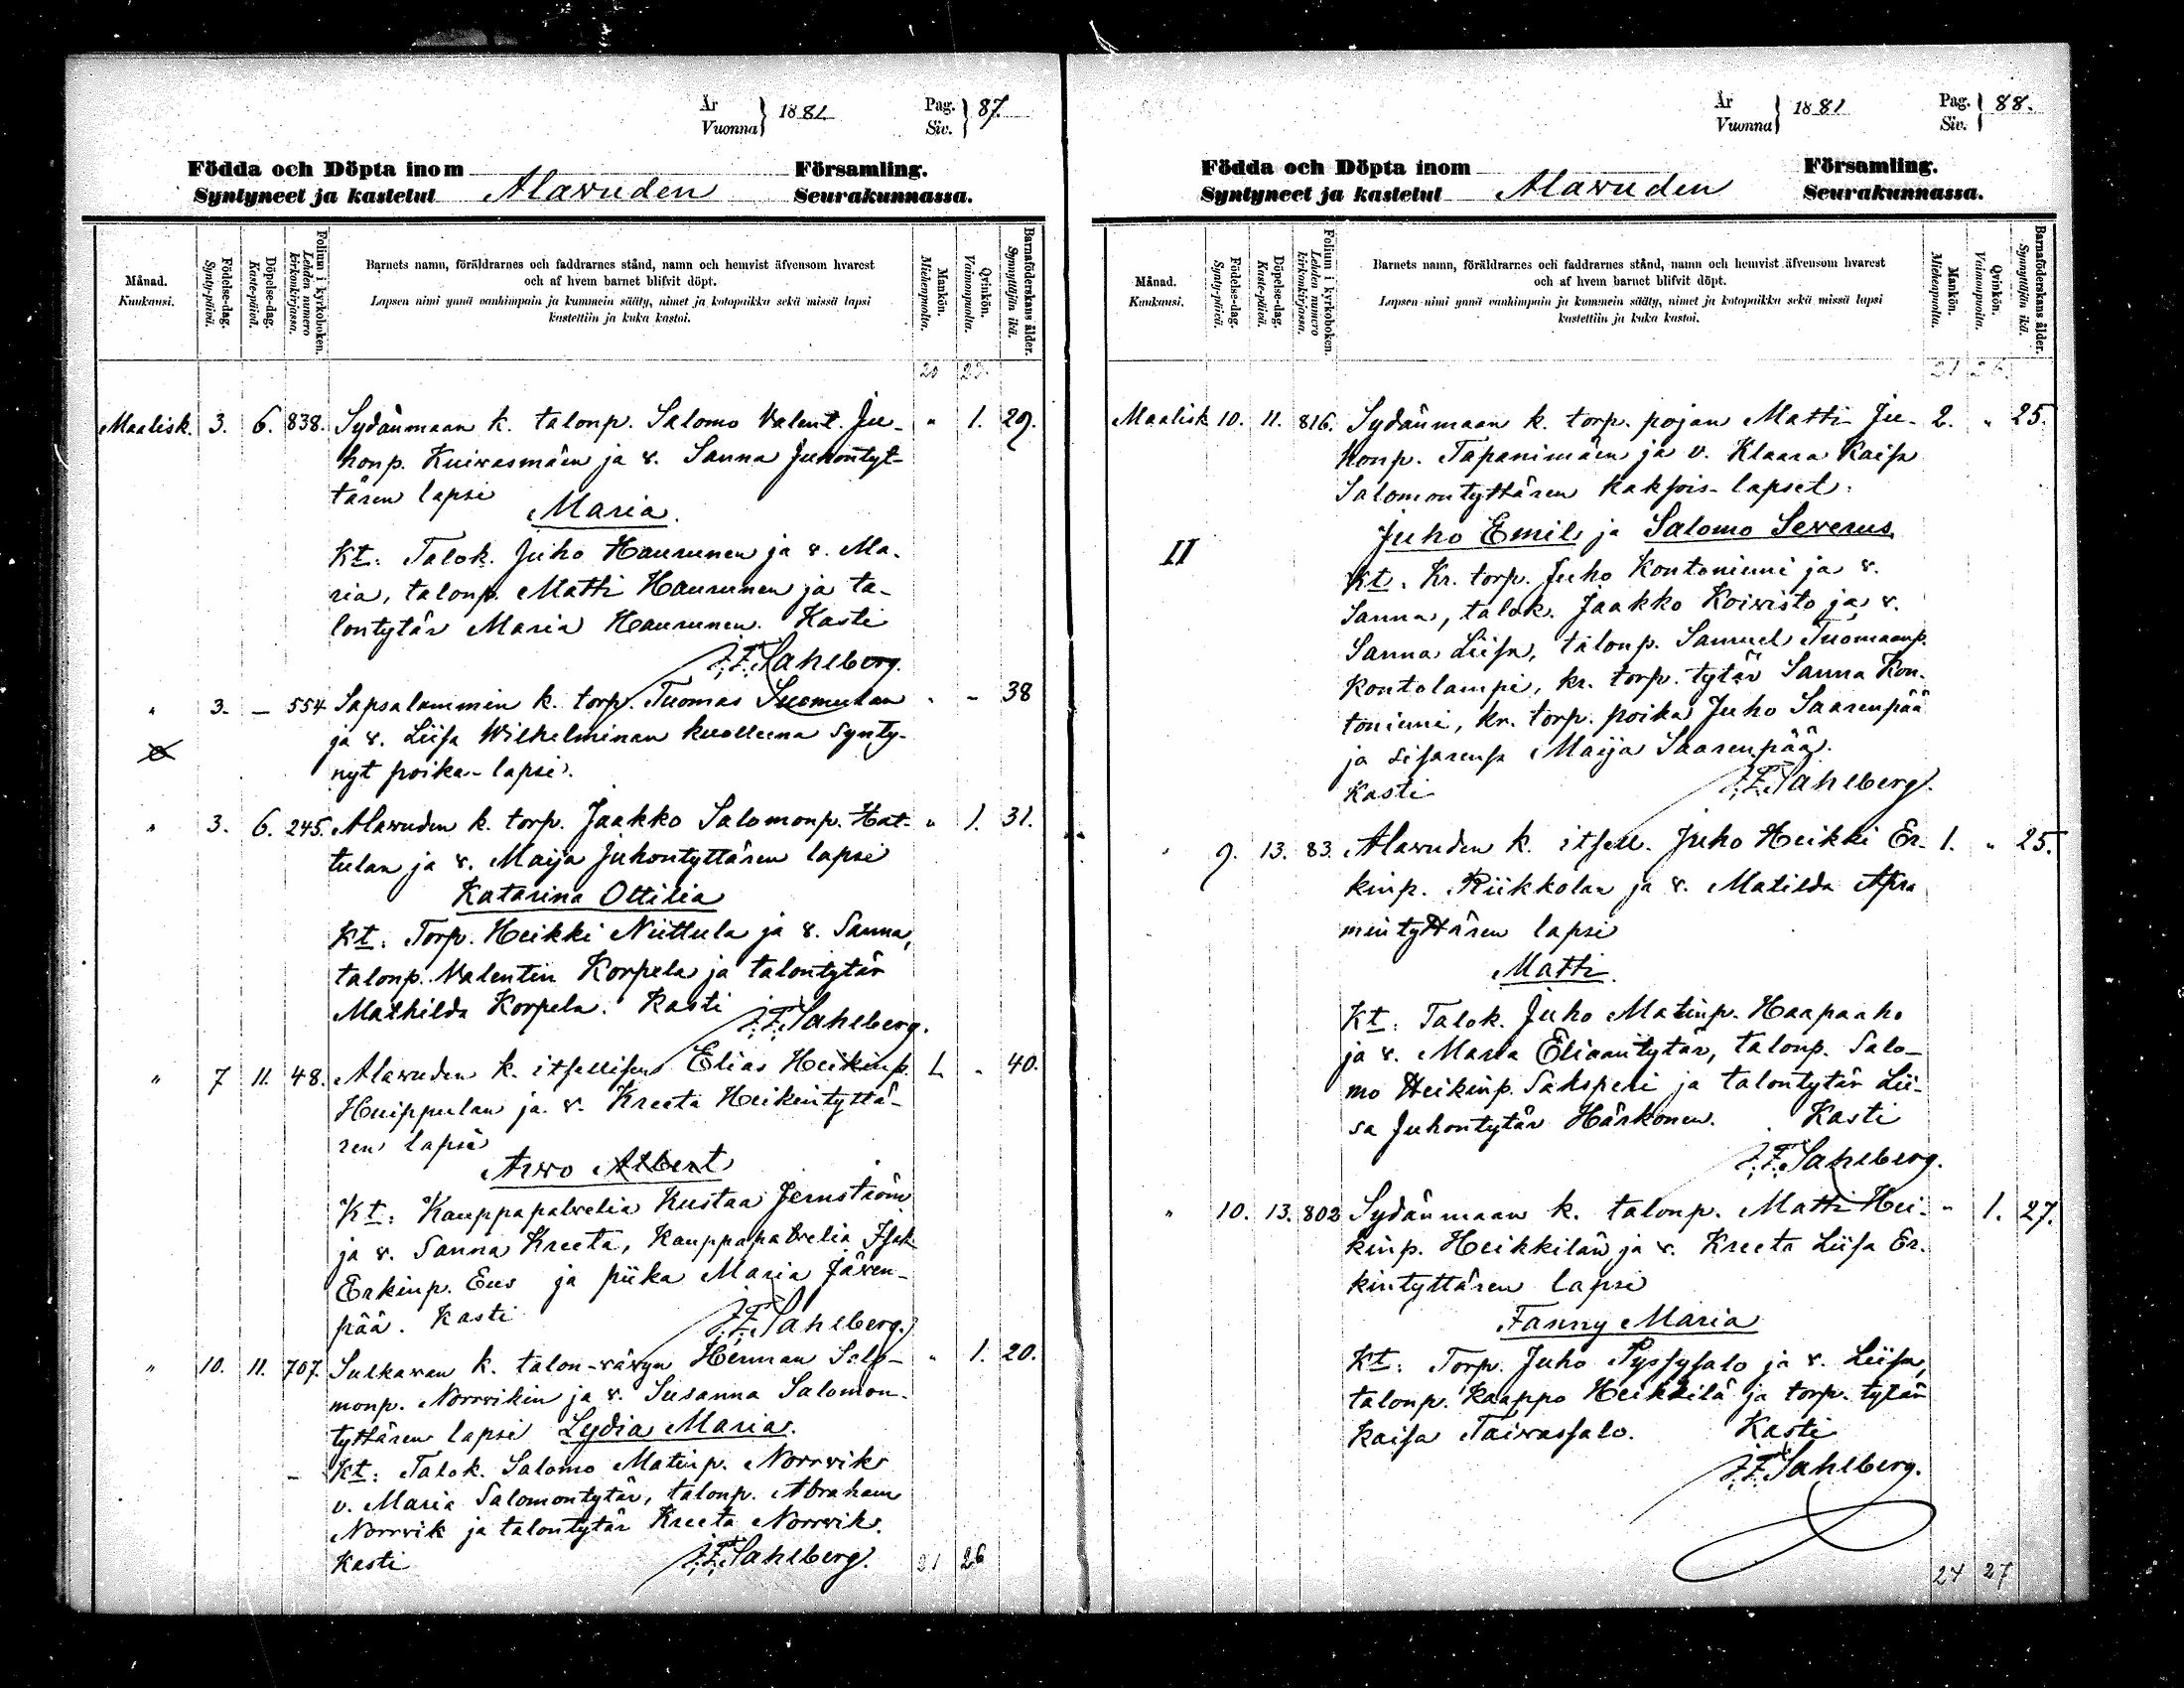 År
Vuonna } 1881
Pag.
Siv. } 87.
Födda och Döpta inom Församling.
Syntyneet ja kastetut Alavuden Seurakunnassa.
Månad.
Kuukausi.
Födelse-dag.
Synty-päivä.
Döpelse-dag.
Kaste-päivä.
Folium i kyrkoboken.
Lehden numero kirkonkirjassa.
Barnets namn, föräldrarnes och faddrarnes stånd, namn och hemvist äfvensom hvarest
och af hvem barnet blifvit döpt.
Lapsen nimi ynnä vanhimpain ja kummein sääty, nimet ja kotopaikka sekä missä lapsi
kastettiin ja kuka kastoi.
Mankön.
Miehenpuolta.
Qvinkön.
Vaimonpuolta.
Barnaföderskans ålder.
Synnyttäjän ikä.
20 23.
Maalisk. 3. 6. 838. Sydänmaan k. talonp. Salomo Valent. Ju- " 1. 29.
honp. Kuivasmäen ja v. Sanna Juhontyt-
tären lapsi
Maria.
Kt: Talok. Juho Haurunen ja v. Ma-
ria, talonp. Matti Haurunen ja ta-
lontytär Maria Haurunen. Kasti
J.F. Sahlberg.
" 3. — 554 Sapsalammin k. torp. Tuomas Suomulan " - 38
ja v. Liisa Wilhelminan kuolleena synty-
nyt poika-lapsi.
" 3. 6. 245. Alavuden k. torp. Jaakko Salomonp. Hat- " 1. 31.
tulan ja v. Maija Juhontyttären lapsi
Katarina Ottilia
Kt: Torp. Heikki Niittula ja v. Sanna,
talonp. Valentin Korpela ja talontytär
Mathilda Korpela. Kasti
J.F. Sahlberg.
" 7 11. 48. Alavuden k. itsellisen Elias Heikinp. 1. " 40.
Huippulan ja v. Kreeta Heikintyttä-
ren lapsi
Arvo Albert
Kt: Kauppapalvelia Kustaa Jernström
ja v. Sanna Kreeta, Kauppapalvelia Isak
Erkinp. Eus ja piika Maria Järven-
pää. Kasti
J.F. Sahlberg.
" 10. 11. 707. Sulkavan k. talon-vävyn Herman Salo- " 1. 20.
monp. Norrvikin ja v. Susanna Salomon-
tyttären lapsi Lydia Maria.
Kt: Talok. Salomo Matinp. Norrvik
v. Maria Salomontytär, talonp. Abraham
Norrvik ja talontytär Kreeta Norrvik.
Kasti J.F. Sahlberg.
21 26
År
Vuonna } 1881
Pag.
Siv. } 88.
Födda och Döpta inom Församling.
Syntyneet ja kastetut Alavuden Seurakunnassa.
Månad.
Kuukausi.
Födelse-dag.
Synty-päivä.
Döpelse-dag.
Kaste-päivä.
Folium i kyrkoboken.
Lehden numero kirkonkirjassa.
Barnets namn, föräldrarnes och faddrarnes stånd, namn och hemvist äfvensom hvarest
och af hvem barnet blifvit döpt.
Lapsen nimi ynnä vanhimpain ja kummein sääty, nimet ja kotopaikka sekä missä lapsi
kastettiin ja kuka kastoi.
Mankön.
Miehenpuolta.
Qvinkön.
Vaimonpuolta.
Barnaföderskans ålder.
Synnyttäjän ikä.
21 26.
Maalisk 10. 11. 816. Sydänmaan k. torp. pojan Matti Ju- 2. " 25.
honp. Tapanimäen ja v. Klaara Kaisa
Salomontyttären kaksois-lapset:
Juho Emil ja Salomo Severus
II
Kt: Kr. torp. Juho Kontoniemi ja v.
Sanna, talok. Jaakko Koivisto ja v.
Sanna Liisa, talonp. Samuel Tuomaanp.
Kontolampi, kr. torp. tytär Sanna Kon-
toniemi, kr. torp. poika Juho Saarenpää
ja sisarensa Maija Saarenpää.
Kasti J.F. Sahlberg.
" 9. 13. 83. Alavuden k. itsell. Juho Heikki Er- 1. " 25.
kinp. Riikkolan ja v. Matilda Apra
mintyttären lapsi
Matti.
Kt: Talok. Juho Matinp. Haapaaho
ja v. Maria Eliaantytär, talonp. Salo-
mo Heikinp. Sahsperi ja talontytär Lii-
sa Juhontytär Härkonen. Kasti
J.F. Sahlberg.
" 10. 13. 802 Sydänmaan k. talonp. Matti Hei- " 1. 27.
kinp. Heikkilän ja v. Kreeta Liisa Er-
kintyttären lapsi
Fanny Maria
Kt: Torp. Juho Pyssysalo ja v. Liisa,
talonp. Kaappo Heikkilä ja torp. tytär
Kaisa Taivassalo. Kasti
J.F. Sahlberg.
24 27